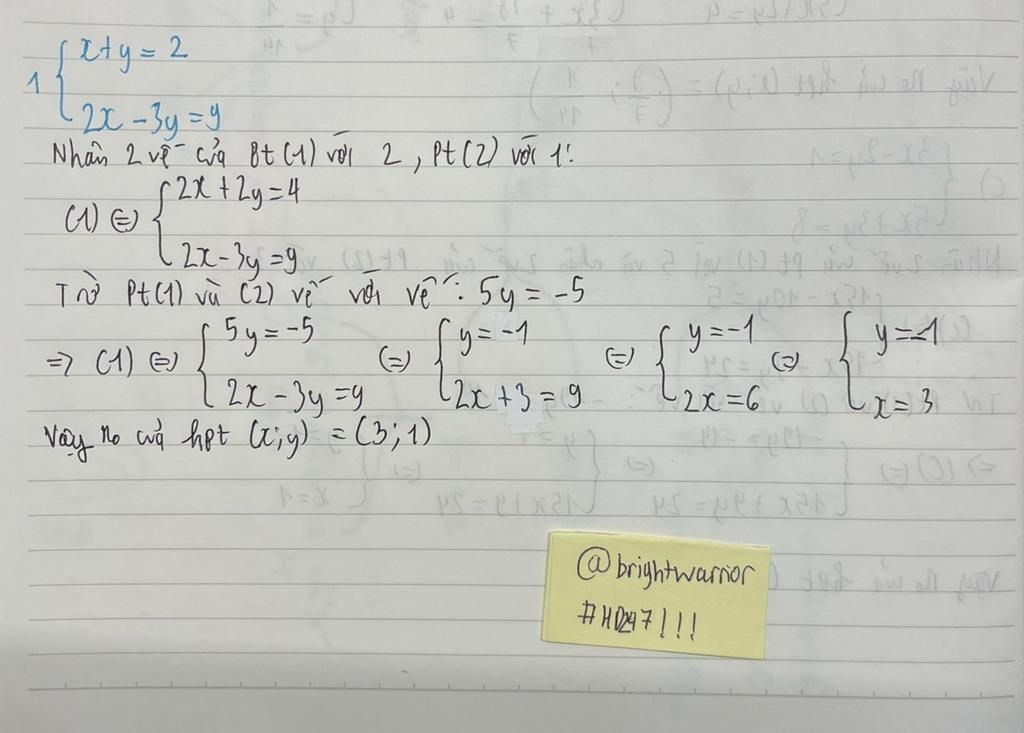 1 { x+y = 2
2x - 3y = 9
Nhân 2 vế của Pt (1) với 2, Pt (2) với 1:
(1) ⇔ { 2x + 2y = 4
2x - 3y = 9
Trừ Pt(1) và (2) vế với vế: 5y = -5
=> (1) ⇔ { 5y = -5 ⇔ { y = -1 ⇔ { y = -1 ⇔ { y = -1
2x - 3y = 9 2x + 3 = 9 2x = 6 x = 3
Vậy no của hpt (x;y) = (3;1)
@brightwarrior
#HD247!!!